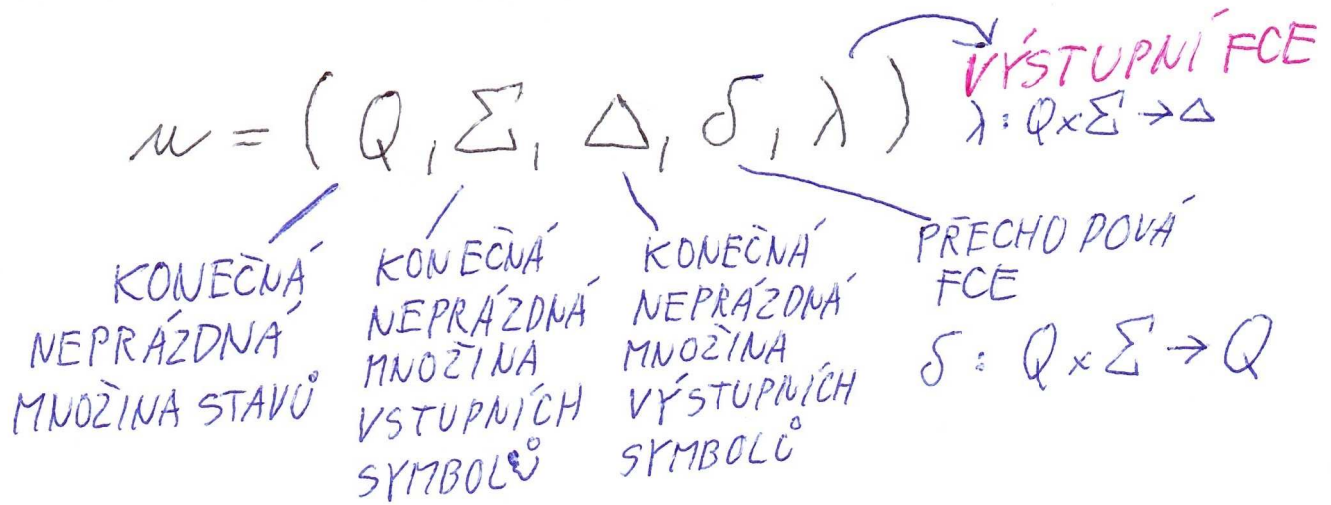 VÝSTUPNÍ FCE
λ : Q×Σ → Δ
μ = ( Q, Σ, Δ, δ, λ )
KONEČNÁ
NEPRÁZDNÁ
MNOŽINA STAVŮ
KONEČNÁ
NEPRÁZDNÁ
MNOŽINA
VSTUPNÍCH
SYMBOLŮ
KONEČNÁ
NEPRÁZDNÁ
MNOŽINA
VÝSTUPNÍCH
SYMBOLŮ
PŘECHODOVÁ
FCE
δ : Q×Σ → Q